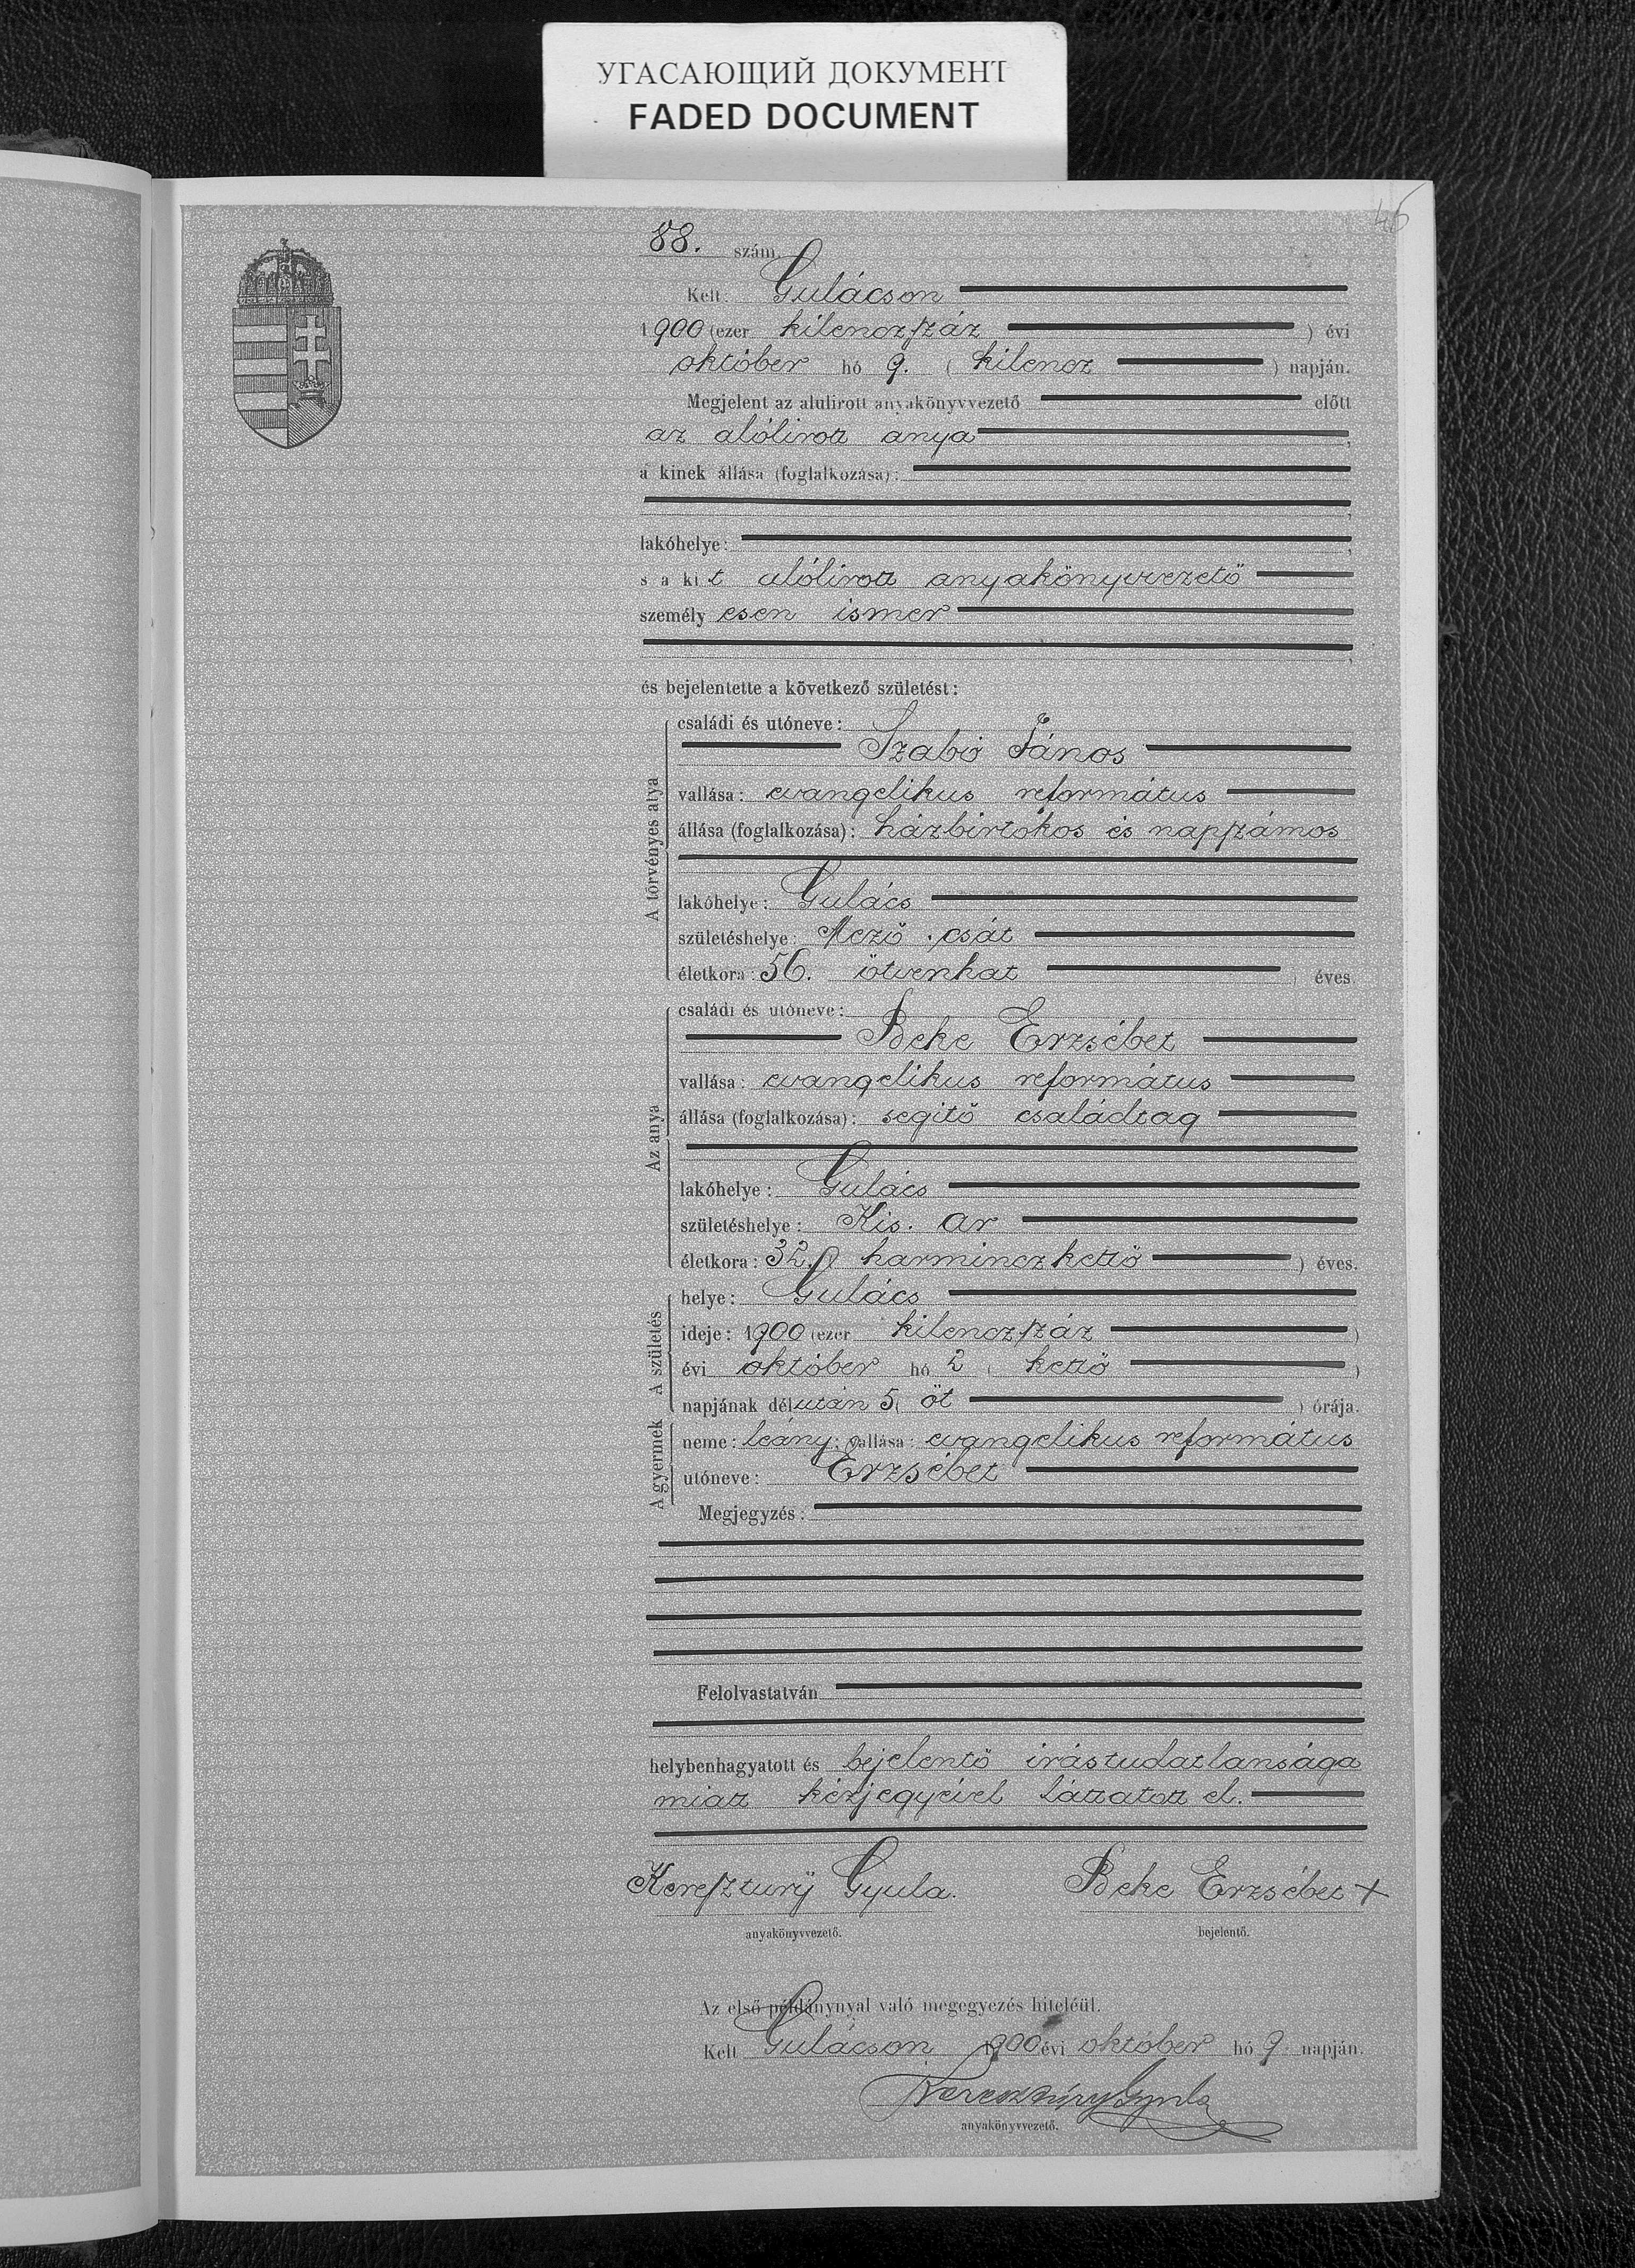 УГАСАЮЩИЙ ДОКУМЕНТ
FADED DOCUMENT
46
88. szám.
Kelt: Gulácson
1900 (ezer kilenczszáz ) évi
október hó 9. ( kilencz ) napján.
Megjelent az alulirott anyakönyvvezető előtt
az alólirott anya ,
a kinek állása (foglalkozása):
,
lakóhelye: ,
s a kit alólirott anyakönyvvezető
személyesen ismer
,
és bejelentette a következő születést:
A törvényes atya
családi és utóneve:
Szabó János
vallása: evangelikus református
állása (foglalkozása): házbirtokos és napszámos
lakóhelye: Gulács
születéshelye: Mező-csát
életkora: 56. ötvenhat ) éves.
Az anya
családi és utóneve:
Beke Erzsébet
vallása: evangelikus református
állása (foglalkozása): segitő családtag
lakóhelye: Gulács
születéshelye: Kis. ar
életkora: 32. ( harminczkettő ) éves.
A születés
helye: Gulács
ideje: 1900 (ezer kilenczszáz )
évi október hó 2 ( kettő )
napjának délután 5 ( öt ) órája.
A gyermek
neme: leány; vallása: evangelikus református
utóneve: Erzsébet
Megjegyzés:
Felolvastatván
helybenhagyatott és bejelentő irástudatlansága
miatt kézjegyével láttatott el.
Keresztury Gyula. Beke Erzsébet +
anyakönyvvezető. bejelentő.
Az első példánynyal való megegyezés hiteléül.
Kelt Gulácson 1900 évi október hó 9 napján.
Keresztúry Gyula
anyakönyvvezető.